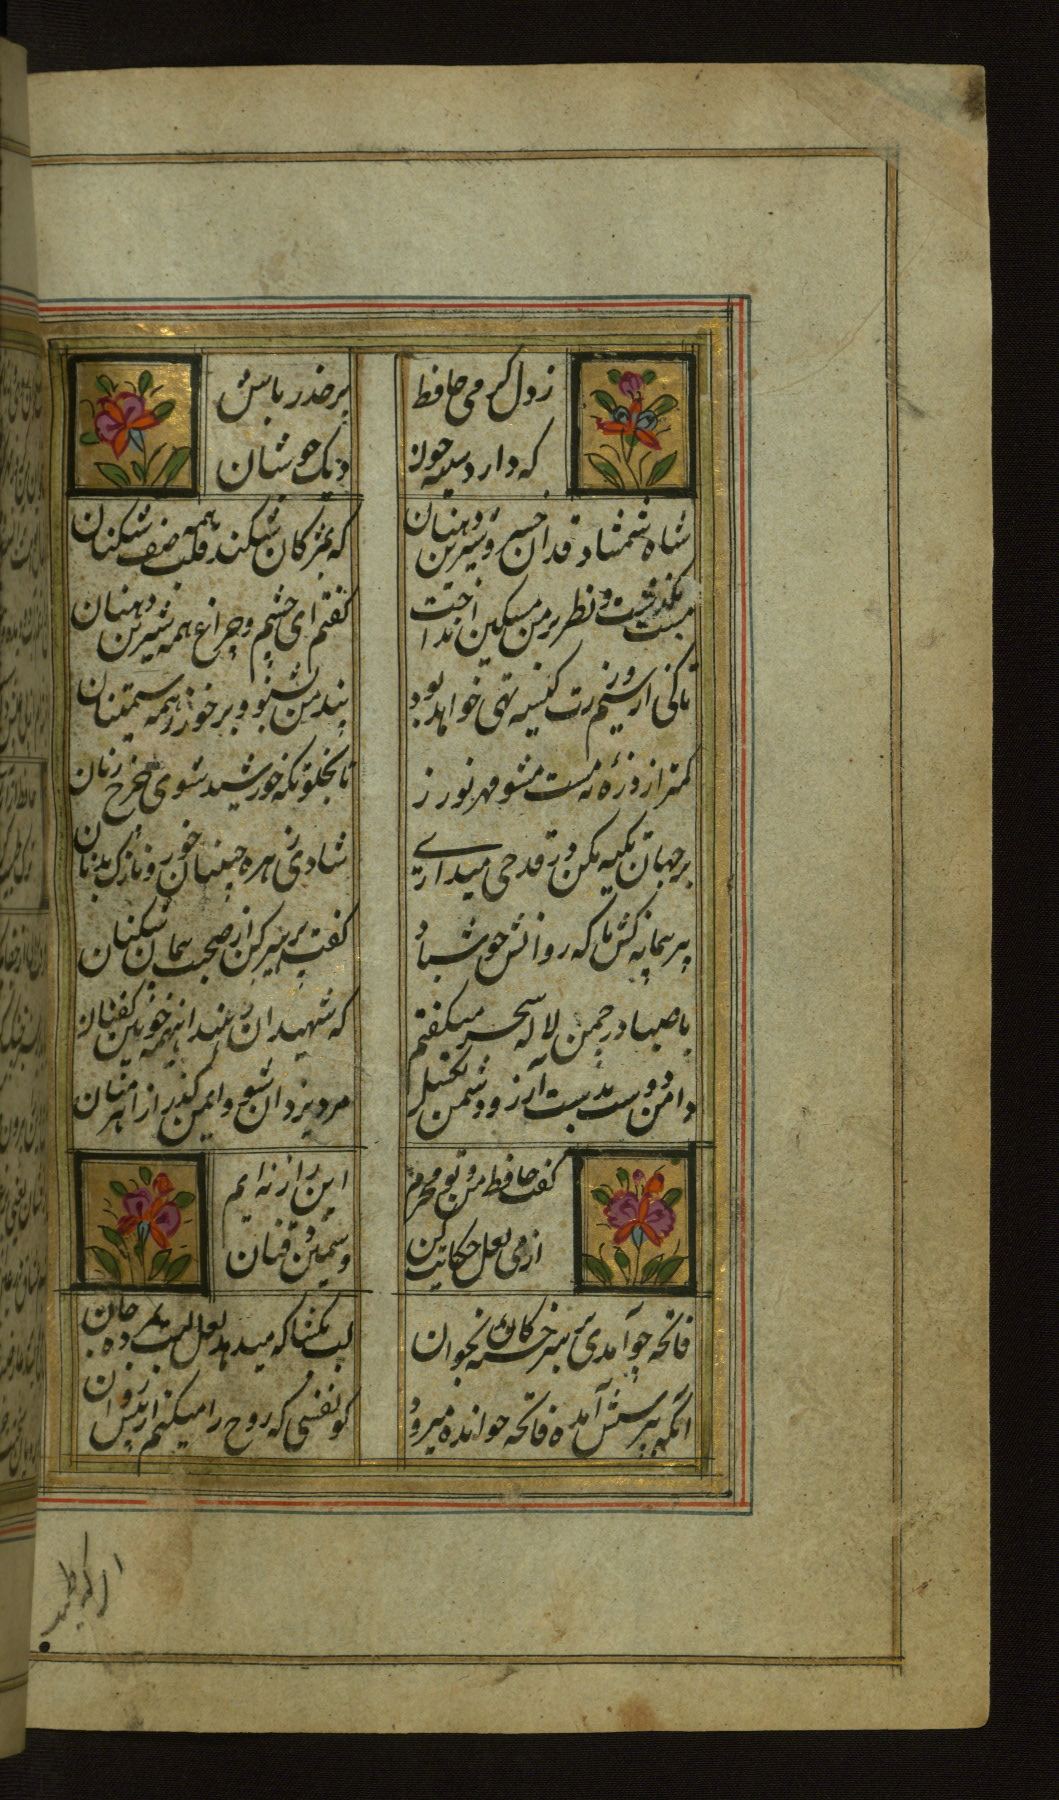 ز دل گرمی حافظ
بر حذر باش
که دارد سینه چون
دیک جوشان
شاه شمشاد قدان خسرو شیرین دهنان
که بمژکان شکند قلب همه صف شکنان
مست بکذشت و نظر بر من مسکین انداخت
گفتم ای چشم و چراغ همه شیرین دهنان
تا کی از سیم و زرت کیسه تهی خواهد بود
پند من بشنو و برخور ز همه سیمتنان
کمتر از ذرهٔ نهٔ پست مشو مهر بورز
تا بخلوتکه خورشید شوی چرخ زنان
بر جهان تکیه مکن ور قدحی می داری
شادی زهره جبینان خور و نازک بدنان
پیر پیمانه کش ما که روانش خوش باد
گفت پرهیز کن از صحبت پیمان شکنان
با صبا در چمن لاله سحر میکفتم
که شهیدان که‌اند اینهمه خونین کفنان
دامن دوست بدست آر و ز دشمن بکسل
مرد یزدان شو و ایمن کذر از اهرمنان
گفت حافظ من و تو محرم
این راز نه ایم
از می لعل حکایت کن
و شیرین دهنان
فاتحه چو آمدی بر سر خستهٔ بخوان
لب بکشا که میدهد لعل لبت بمرده جان
آنکه بپرسش آمد و فاتحه خواند و میرود
کو نفسی که روح را میکنم از پیش روان